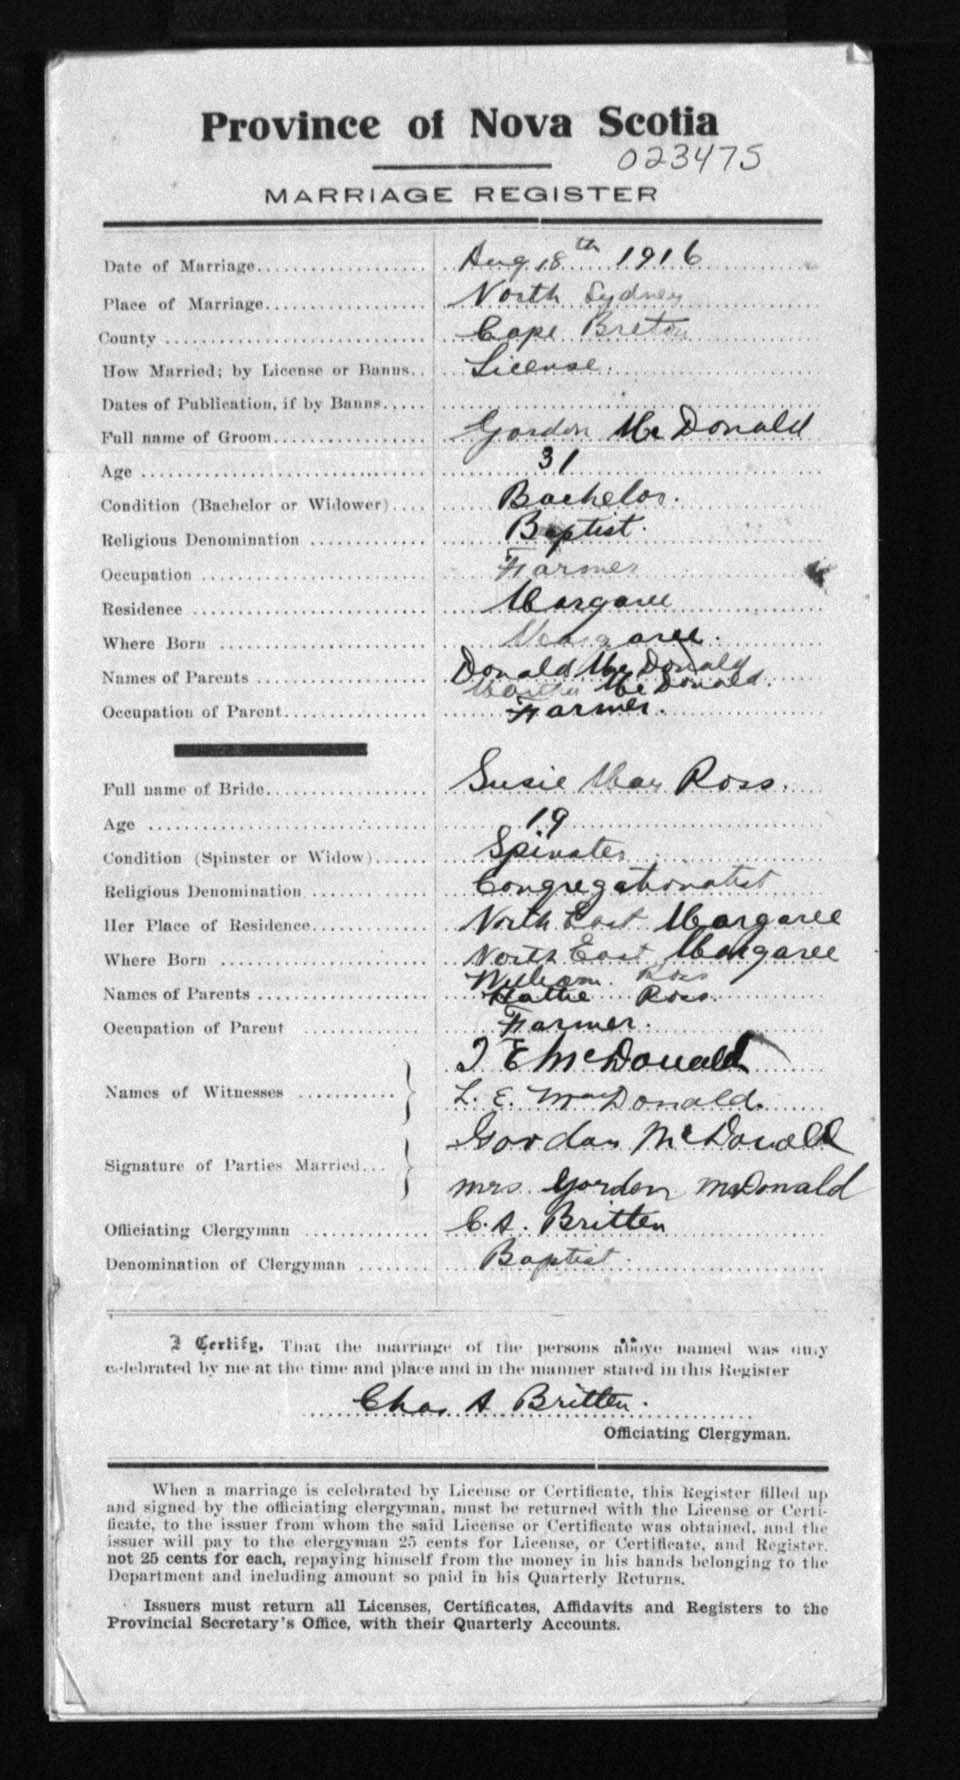 Province of Nova Scotia
023475
MARRIAGE REGISTER
Date of Marriage Aug 18th 1916
Place of Marriage North Sydney
County Cape Breton
How Married; by License or Banns License.
Dates of Publication, if by Banns
Full name of Groom Gordon Mc Donald
Age 31
Condition (Bachelor or Widower) Bachelor.
Religious Denomination Baptist.
Occupation Farmer
Residence Margaree
Where Born Margaree.
Names of Parents Donald Mc Donald
Mc Donald.
Occupation of Parent Farmer.
Full name of Bride Susie May Ross.
Age 19
Condition (Spinster or Widow) Spinster
Religious Denomination Congregationalist
Her Place of Residence North East Margaree
Where Born North East Margaree
Names of Parents William Ross
Hattie Ross.
Occupation of Parent Farmer.
Names of Witnesses E McDonald
L. E. MacDonald.
Signature of Parties Married Gordon McDonald
mrs. Gordon McDonald
Officiating Clergyman C. A. Britten
Denomination of Clergyman Baptist.
I Certify, That the marriage of the persons above named was duly
celebrated by me at the time and place and in the manner stated in this Register
Chas A Britten.
Officiating Clergyman.
When a marriage is celebrated by License or Certificate, this Register filled up
and signed by the officiating clergyman, must be returned with the License or Certi-
ficate, to the issuer from whom the said License or Certificate was obtained, and the
issuer will pay to the clergyman 25 cents for License, or Certificate, and Register,
not 25 cents for each, repaying himself from the money in his hands belonging to the
Department and including amount so paid in his Quarterly Returns.
Issuers must return all Licenses, Certificates, Affidavits and Registers to the
Provincial Secretary's Office, with their Quarterly Accounts.